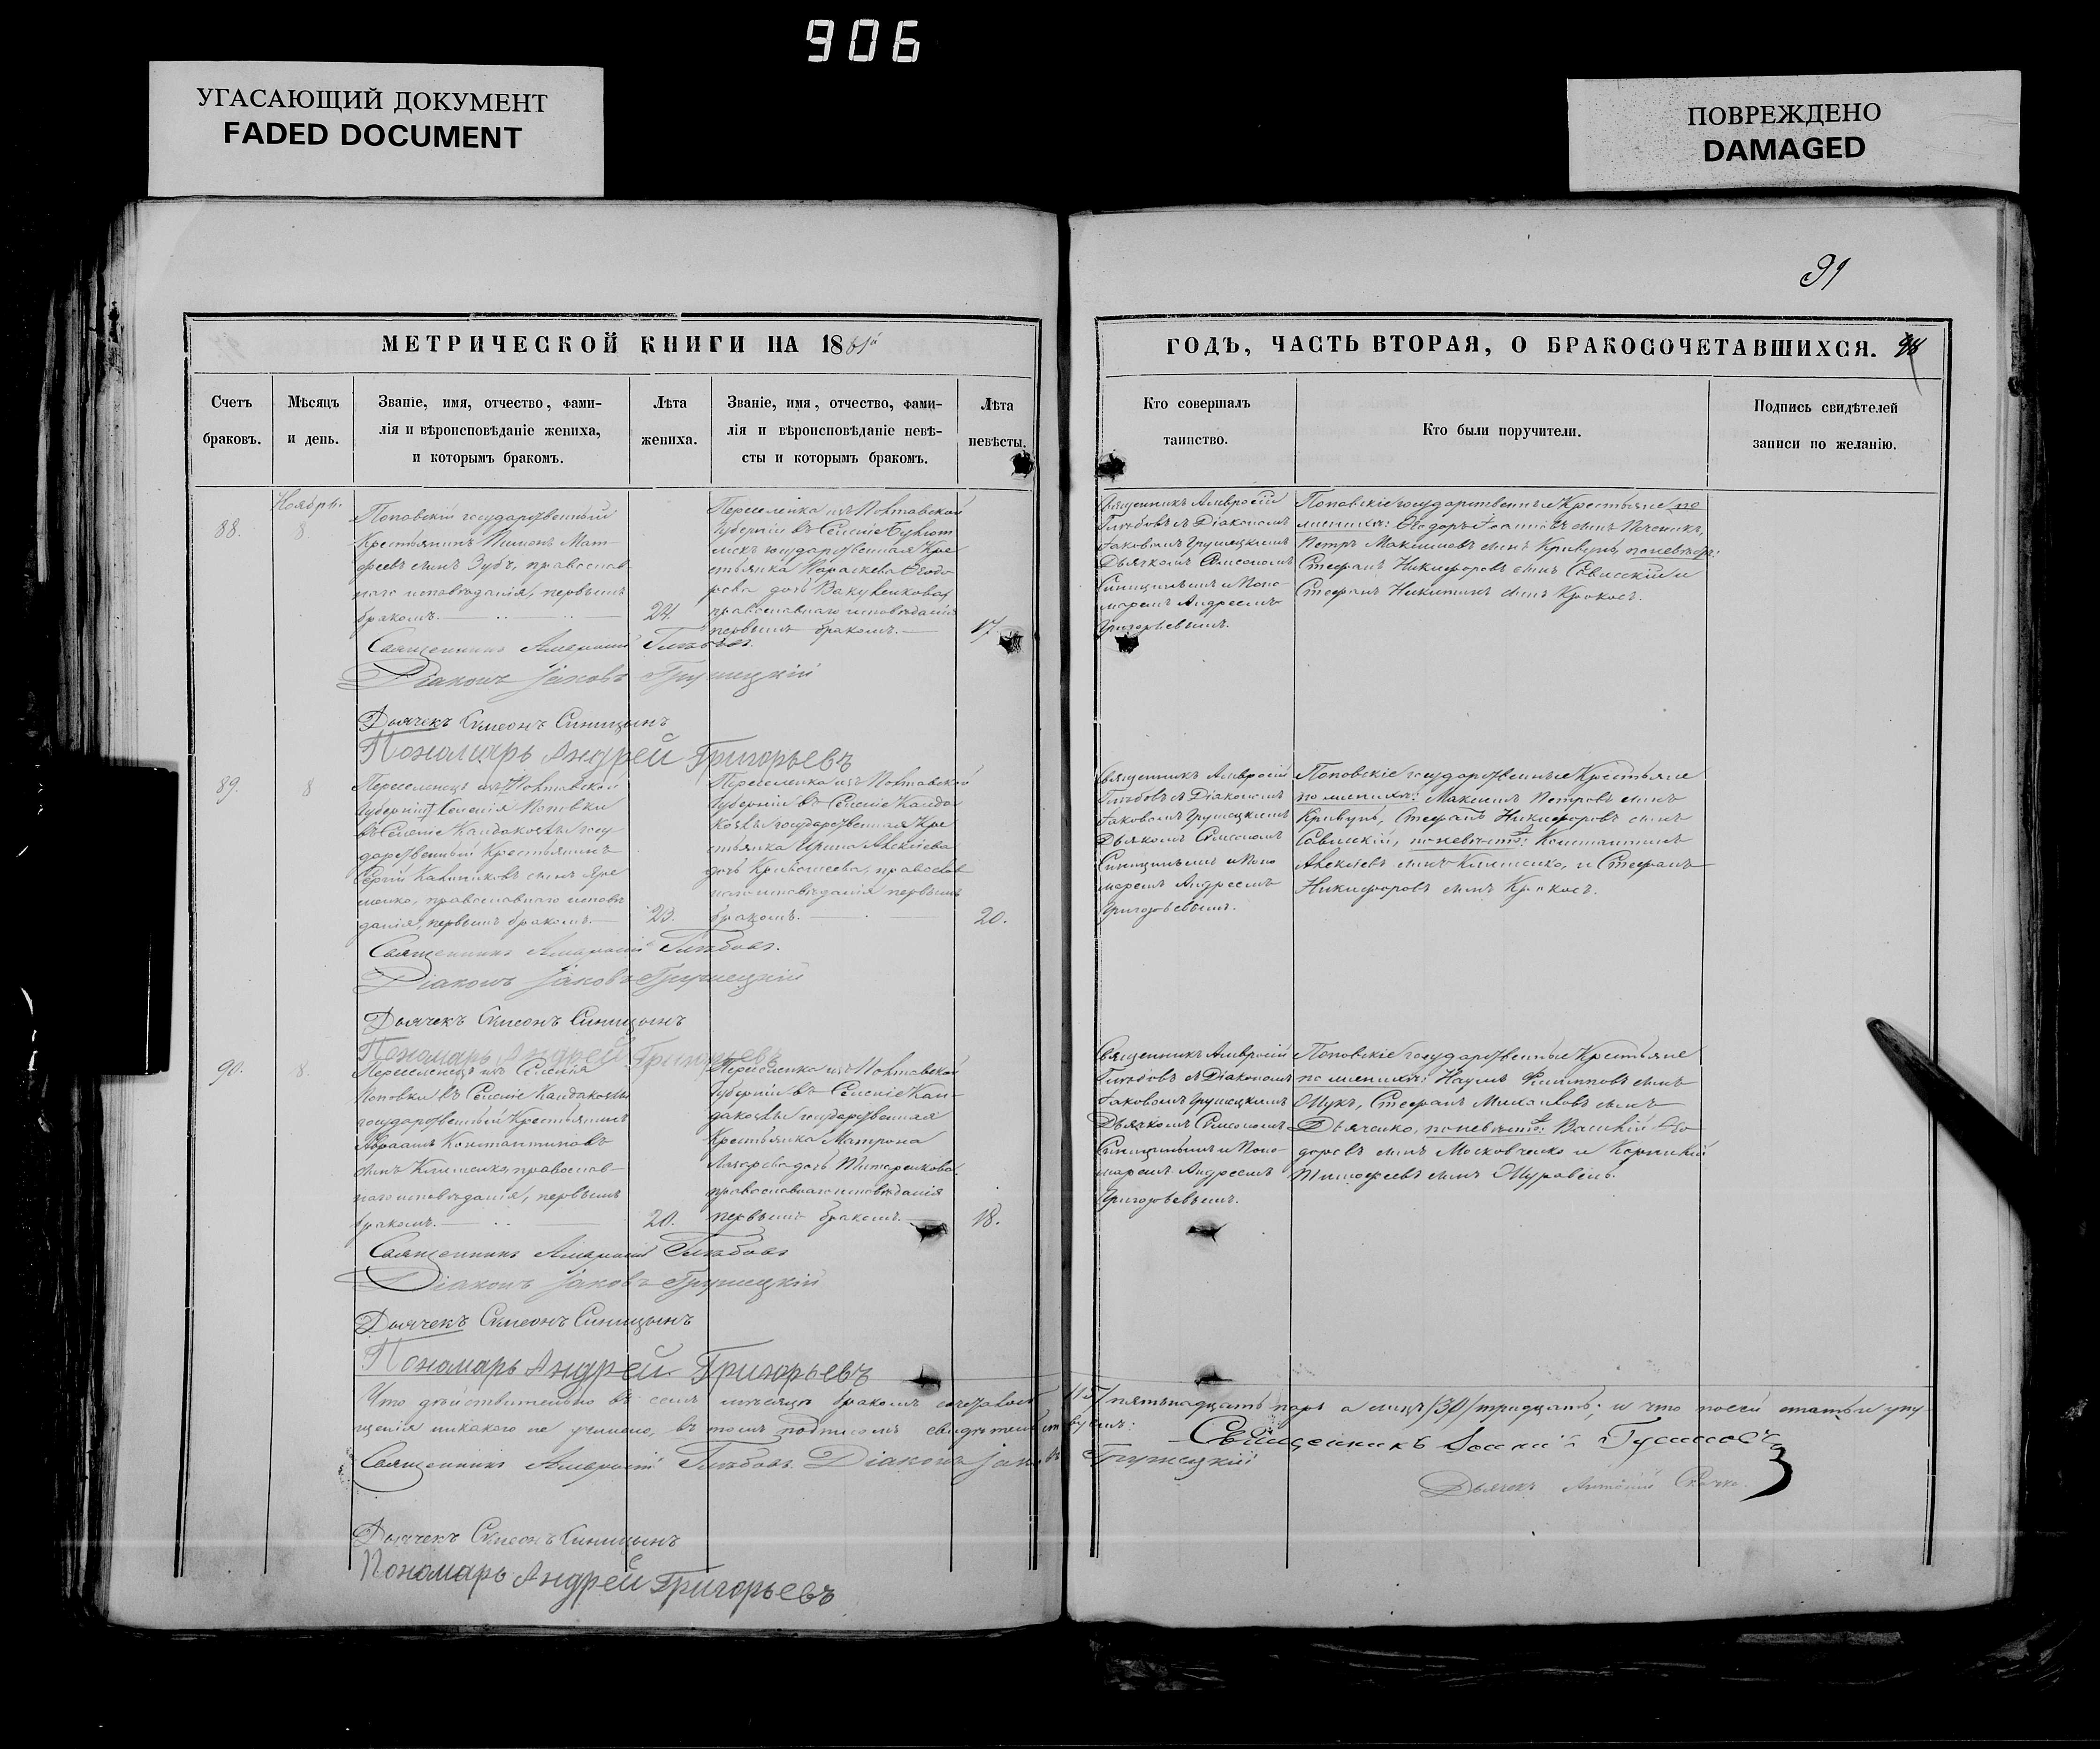 906
УГАСАЮЩИЙ ДОКУМЕНТ
FADED DOCUMENT
ПОВРЕЖДЕНО
DAMAGED
91
МЕТРИЧЕСКОЙ КНИГИ НА 1861й
Счетъ
браковъ.
Мѣсяцъ
и день.
Званіе, имя, отчество, фами-
лія и вѣроисповѣданіе жениха,
и которымъ бракомъ.
Лѣта
жениха.
Званіе, имя, отчество, фами-
лія и вѣроисповѣданіе невѣ-
сты и которымъ бракомъ.
Лѣта
невѣсты.
ГОДЪ, ЧАСТЬ ВТОРАЯ, О БРАКОСОЧЕТАВШИХСЯ.
Кто совершалъ
таинство.
Кто были поручители.
Подпись свидѣтелей
записи по желанію.
88.
Ноября.
8.
Поповскій государственный
Крестьянинъ Пименъ Мат-
феевъ сынъ Зубъ, православ-
наго исповѣданія, первымъ
бракомъ.
24.
Переселенка изъ Полтавской
Губерніи въ Селеніе
государственная Кре
стьянка Параскева Ѳеодо-
рова дочь Вакуленкова,
православнаго исповѣданія
первымъ бракомъ.
17.
Священникъ Амвросій
Глѣбовъ съ Діакономъ
Іаковомъ Грушецкимъ
Дьячкомъ Симеономъ
Синицынымъ и Поно-
маремъ Андреемъ
Григорьевымъ.
Поповскіе государственные Крестьяне по
женихѣ: Ѳедоръ сынъ
Петръ Максимовъ сынъ Кривунъ, по невѣстѣ:
Стефанъ Никифоровъ сынъ Савискій и
Стефанъ сынъ
Священникъ Амвросій Глѣбовъ.
Діаконъ Іаковъ Грушецкій
Дьячекъ Симеонъ Синицынъ
Пономарь Андрей Григорьевъ
89.
8
Переселенецъ изъ Полтавской
Губерніи Селенія Поповки
въ Селеніе госу
дарственный Крестьянинъ
Сергій сынъ Яре
менко, православнаго исповѣ
данія, первымъ бракомъ.
23.
Переселенка изъ Полтавской
Губерніи въ Селеніе
государственная Кре
стьянка Ирина Алексіева
дочь православ
наго исповѣданія первымъ
бракомъ.
20.
Священникъ Амвросій
Глѣбовъ съ Діакономъ
Іаковомъ Грушецкимъ
Дьячкомъ Симеономъ
Синицынымъ и Поно
маремъ Андреемъ
Григорьевымъ.
Поповскіе государственные Крестьяне
по женихѣ: Максимъ Петровъ сынъ
Кривунъ, Стефанъ Никифоровъ сынъ
Савискій, по невѣстѣ: Константинъ
Алексіевъ сынъ Клименко, и Стефанъ
Никифоровъ сынъ
Священникъ Амвросій Глѣбовъ.
Діаконъ Іаковъ Грушецкій
Дьячекъ Симеонъ Синицынъ
Пономарь Андрей Григорьевъ
90.
8.
Переселенецъ изъ Селенія
Поповки въ Селеніе
государственный Крестьянинъ
Авраамъ Константиновъ
сынъ Клименко, православ-
наго исповѣданія, первымъ
бракомъ.
20.
Переселенка изъ Полтавской
Губерніи въ Селеніе
государственная
Крестьянка Матрона
Лазарева дочь Титаренкова
православнаго исповѣданія
первымъ бракомъ.
18.
Священникъ Амвросій
Глѣбовъ съ Діакономъ
Іаковомъ Грушецкимъ
Дьячкомъ Симеономъ
Синицынымъ и Поно-
маремъ Андреемъ
Григорьевымъ.
Поповскіе государственные Крестьяне
по женихѣ: Наумъ Филипповъ сынъ
Стефанъ Михайловъ сынъ
Дьяченко, по невѣстѣ: Василій Ѳео
доровъ сынъ Московченко и Корнилій
Тимофеевъ сынъ Журавель.
Священникъ Амвросій Глѣбовъ
Діаконъ Іаковъ Грушецкій
Дьячекъ Симеонъ Синицынъ
Пономарь Андрей Григорьевъ
Что дѣйствительно въ семъ мѣсяцѣ бракомъ /15/ пятьнадцать паръ а лицъ /30/ тридцать, и что
щенія никакого не учинено, въ томъ подписомъ свидѣтельствуемъ:
Священникъ Амвросій Глѣбовъ. Діаконъ Іаковъ Грушецкій
Священникъ
Дьячекъ Симеонъ Синицынъ
Дьячекъ
Пономарь Андрей Григорьевъ